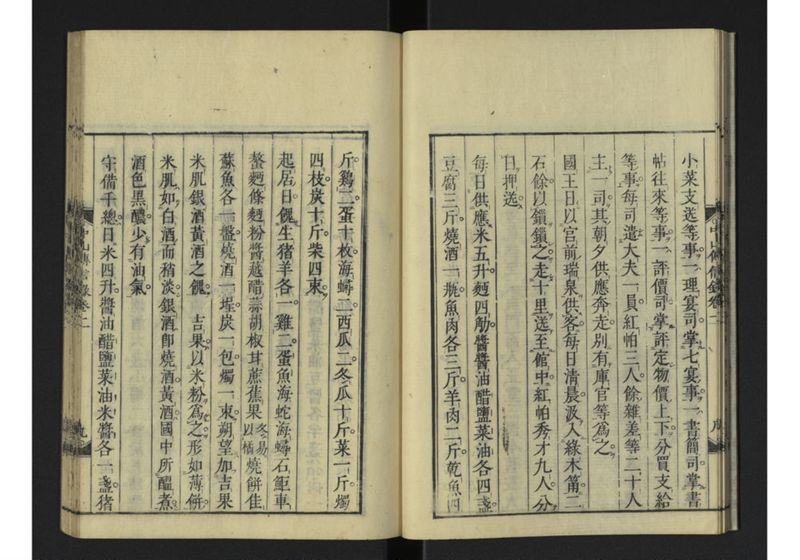 小菜支送等事一理宴司掌七宴事一書簡司掌書
帖往來等事一評價司掌評定物價上下分買支給
等事每司遣大夫一員紅帕三人餘雜差等二十人
主一司其朝夕供應奔走別有庫官等為之
國王日以宮前瑞泉供客每日清晨汲入綠木筩二
石餘以鎖鎖之走十里送至館中紅帕秀才九人分
日押送
每日供應米五升麵四觔醬醬油醋鹽菜油各四盞
豆腐三斤燒酒一瓶魚肉各三斤羊肉二斤乾魚四
中山傳信錄卷二
九
斤鷄二蛋十枚海蟳二西瓜二冬瓜十斤菜一斤燭
四枝炭十斤柴四束
起居日餽生猪羊各一雞二蛋魚海蛇海蟳石鉅車
螯麵條麵粉醬越醋蒜胡椒甘蔗蕉果冬易以橘燒餅佳
蘇魚各一盤燒酒一埕炭一包燭一束朔望加吉果
米肌銀酒黃酒之餽 吉果以米粉爲之形如薄餅
米肌如白酒而稍淡銀酒卽燒酒黃酒國中所醞煮
酒色黑釅少有油氣
守備千總日米四升醬油醋鹽菜油米醬各一盞猪
中山傳信錄卷二
九